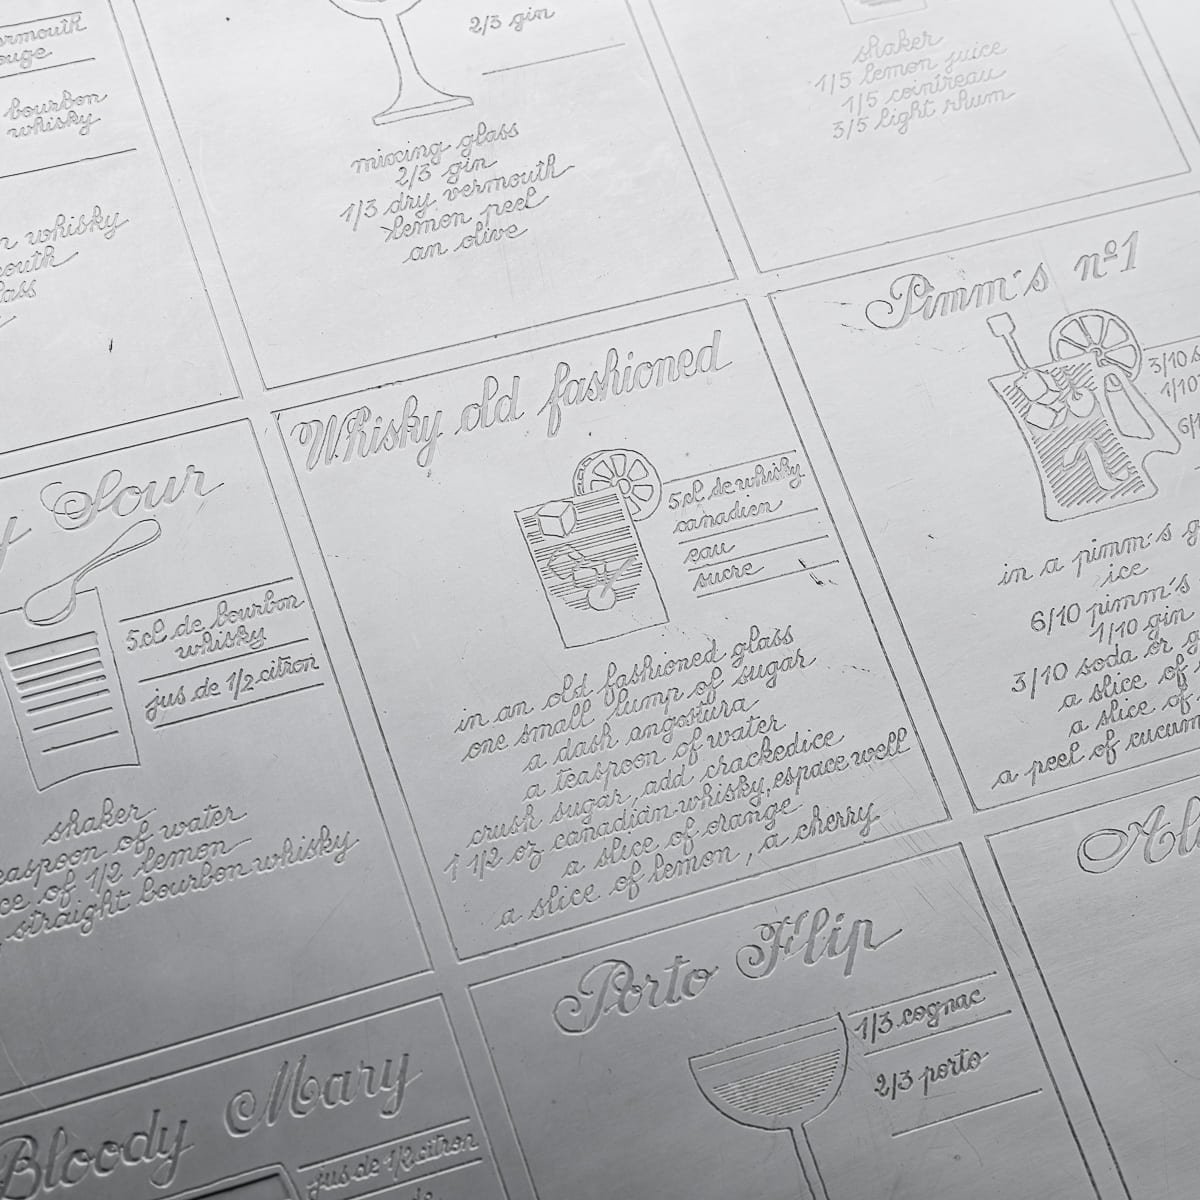 bourbon
whisky
whisky
2/3 gin
mixing glass
2/3 gin
1/3 dry vermouth
lemon peel
an olive
shaker
1/5 lemon juice
1/5 cointreau
3/5 light rhum
Sour
5cl de bourbon
whisky
jus de 1/2 citron
shaker
of water
of 1/2 lemon
straight bourbon whisky
Whisky old fashioned
5cl de whisky
canadien
eau
sucre
in an old fashioned glass
one small lump of sugar
a dash angostura
a teaspoon of water
crush sugar, add crackedice
1 1/2 oz canadian whisky, espace well
a slice of orange
a slice of lemon, a cherry
Pimm's nº1
3/10
1
in a pimm's
ice
6/10 pimm's
1/10 gin
3/10 soda or
a slice of
a slice of
a peel of
Bloody Mary
jus de 1/2 citron
Porto Flip
1/3 cognac
2/3 porto